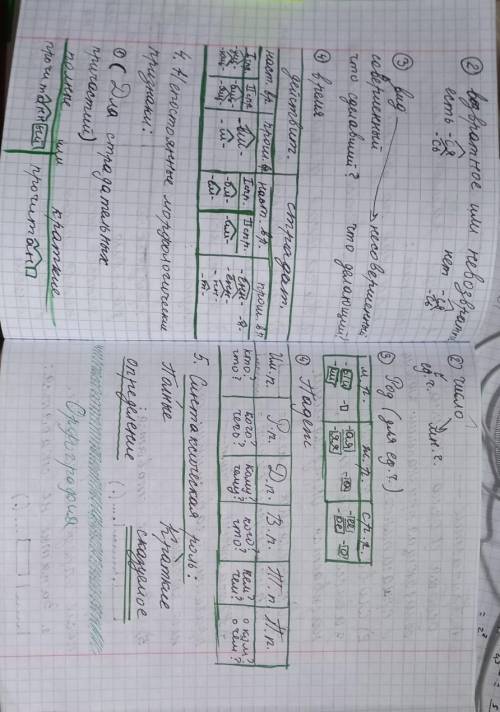 ② возвратное или невозвратн.
есть -ся -сь нет -ся -сь
③ вид
совершенный несовершенный
что сделавший? что делающий?
④ время
действит. страдат.
наст. вр. прош. в. наст. вр. прош. вр.
I спр. II спр. -вш- I спр. II спр. -енн-
-ущ- -ющ- -ащ- -ящ- -ш- -ем- -ом- -им- -нн- -т-
4. Непостоянные морфологические
признаки:
① (Для страдательных
причастий)
полные или краткие
прочитанный прочитана
② число
ед. ч. мн. ч.
③ Род (для ед. ч.)
м. р. ж. р. ср. р.
④ Падеж
Им. п. Р. п. Д. п. В. п. Т. п. П. п.
кто? что? кого? чего? кому? чему? кого? что? кем? чем? о ком? о чём?
5. Синтаксическая роль:
Полные Краткие
определение сказуемое
Орфография